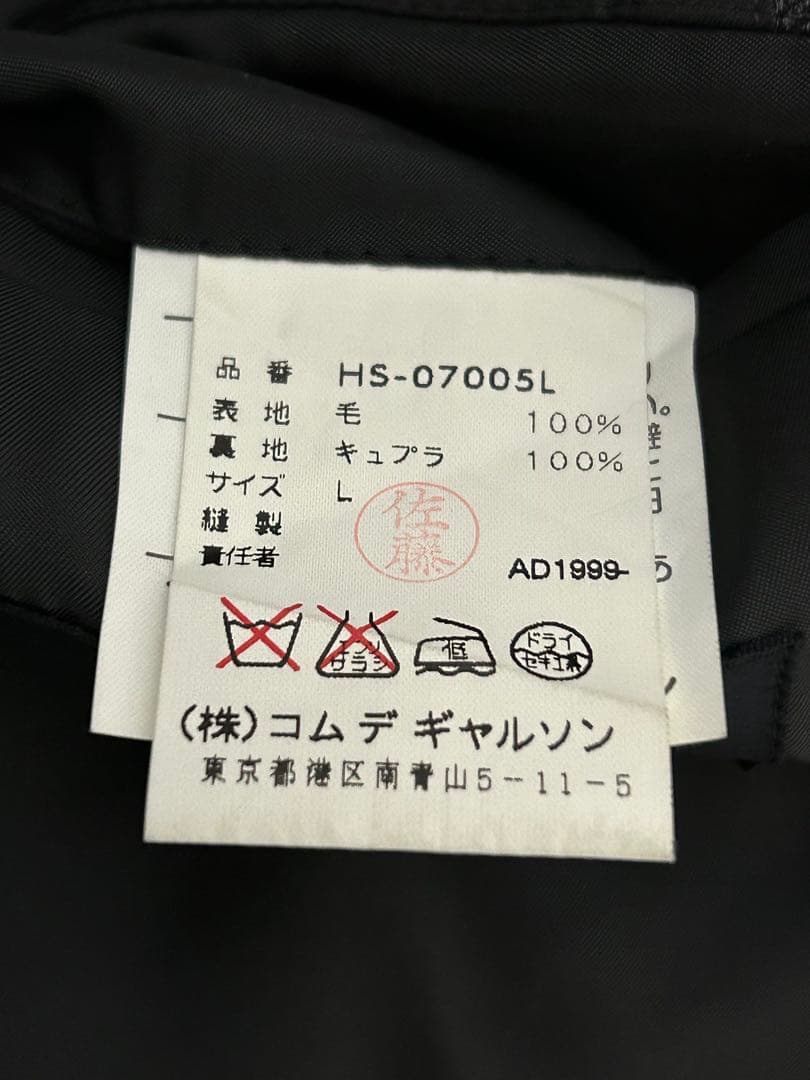 品番 HS-07005L
表地 毛 100%
裏地 キュプラ 100%
サイズ L
縫製
責任者
佐藤
AD1999-
エンソ
サラシ
低
ドライ
セキユ系
(株)コムデギャルソン
東京都港区南青山5-11-5